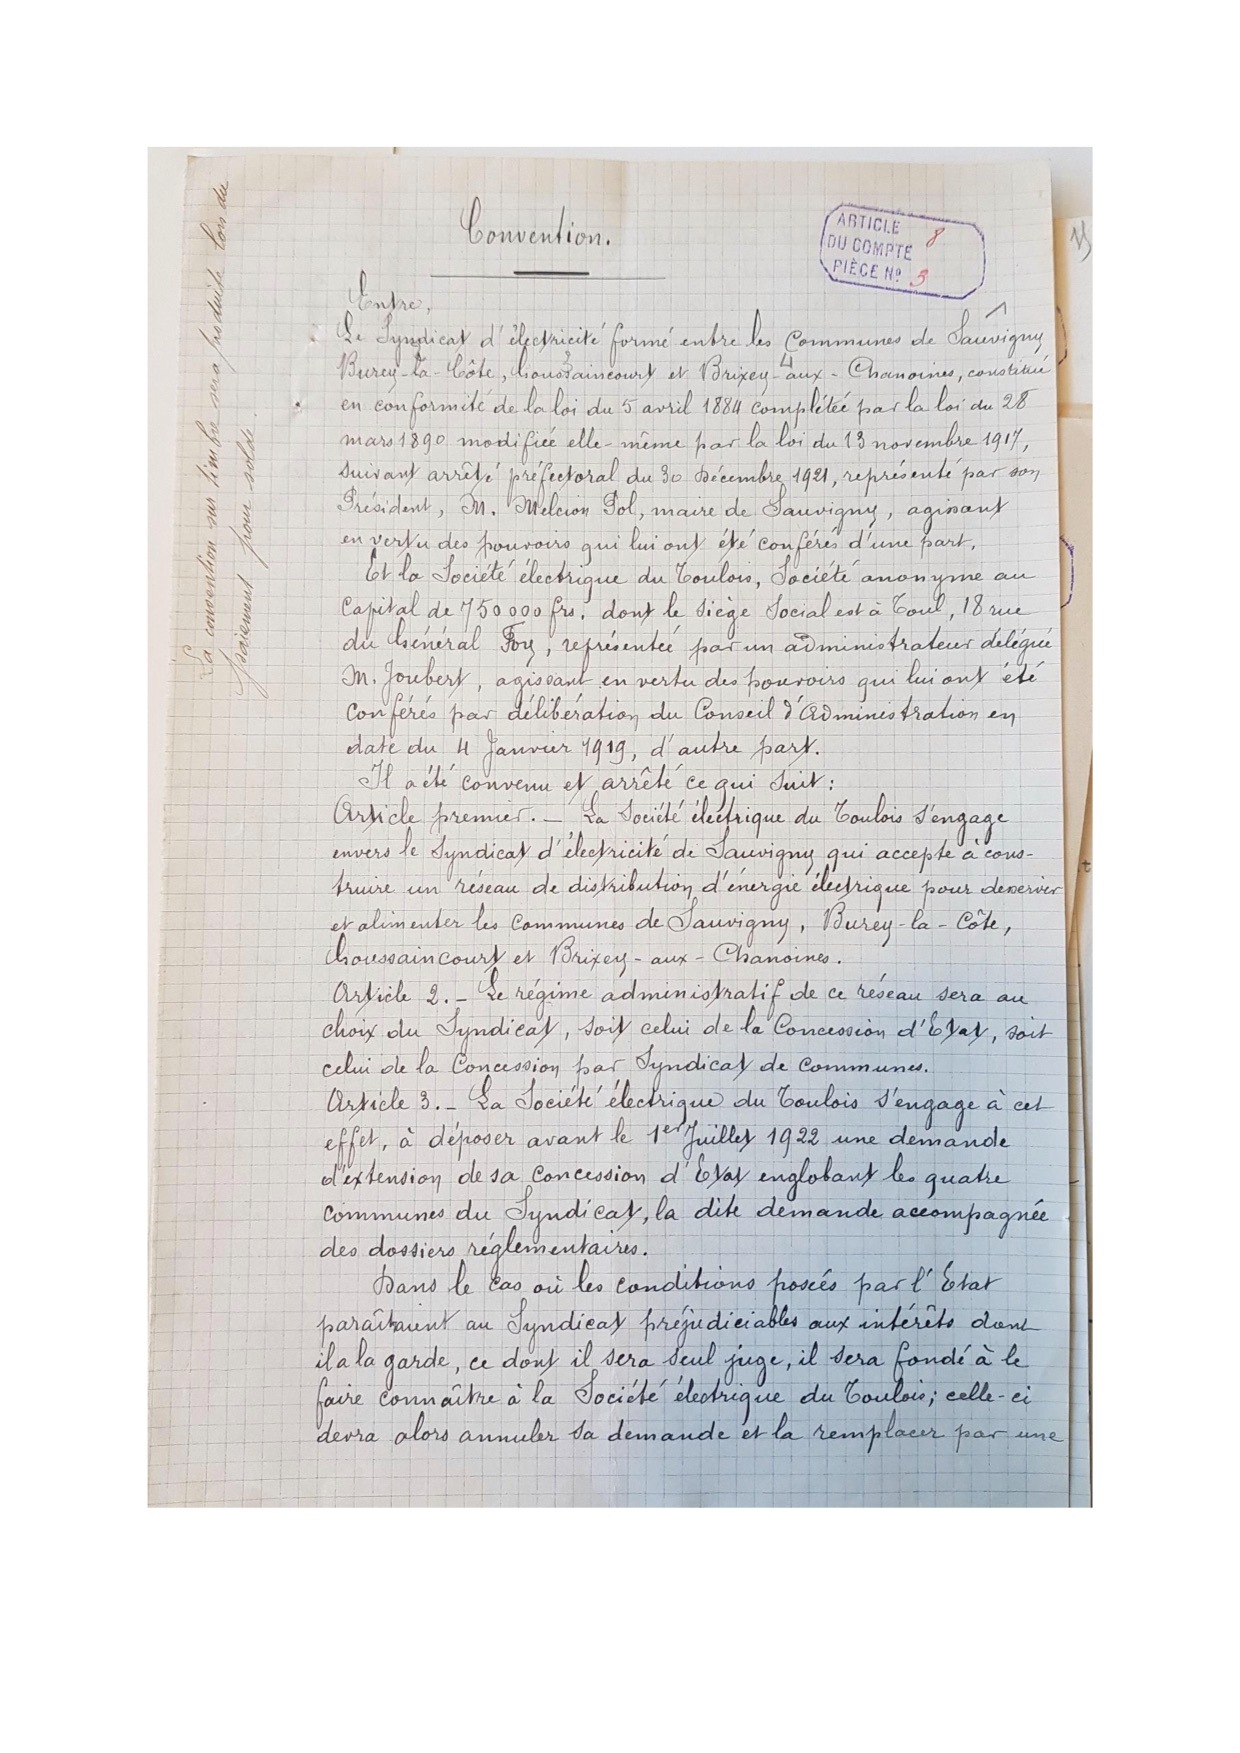 Convention.
ARTICLE 8
DU COMPTE
PIÈCE Nº 3
La convention sur timbre sera produite lors du
paiement pour solde.
Entre,
Le Syndicat d'électricité formé entre les Communes de Sauvigny
Burey-la-Côte, Goussaincourt et Brixey-aux-Chanoines, constitué
en conformité de la loi du 5 avril 1884 complétée par la loi du 28
mars 1890 modifiée elle-même par la loi du 13 novembre 1917,
suivant arrêté préfectoral du 30 Décembre 1921, représenté par son
Président, M. Melcion Pol, maire de Sauvigny, agissant
en vertu des pouvoirs qui lui ont été conférés d'une part,
Et la Société électrique du Toulois, Société anonyme au
Capital de 750000 frs. dont le siège Social est à Toul, 18 rue
du Général Foy, représentée par un administrateur délégué
M. Joubert, agissant en vertu des pouvoirs qui lui ont été
conférés par délibération du Conseil d'Administration en
date du 4 Janvier 1919, d'autre part.
Il a été convenu et arrêté ce qui suit :
Article premier. _ La Société électrique du Toulois s'engage
envers le Syndicat d'électricité de Sauvigny qui accepte à cons-
truire un réseau de distribution d'énergie électrique pour desservir
et alimenter les Communes de Sauvigny, Burey-la-Côte,
Goussaincourt et Brixey-aux-Chanoines.
Article 2. _ Le régime administratif de ce réseau sera au
choix du Syndicat, soit celui de la Concession d'Etat, soit
celui de la Concession par Syndicat de Communes.
Article 3. _ La Société électrique du Toulois s'engage à cet
effet, à déposer avant le 1er Juillet 1922 une demande
d'extension de sa concession d'Etat englobant les quatre
communes du Syndicat, la dite demande accompagnée
des dossiers réglementaires.
Dans le cas où les conditions posées par l'État
paraîtraient au Syndicat préjudiciables aux intérêts dont
il a la garde, ce dont il sera seul juge, il sera fondé à le
faire connaître à la Société électrique du Toulois; celle-ci
devra alors annuler sa demande et la remplacer par une